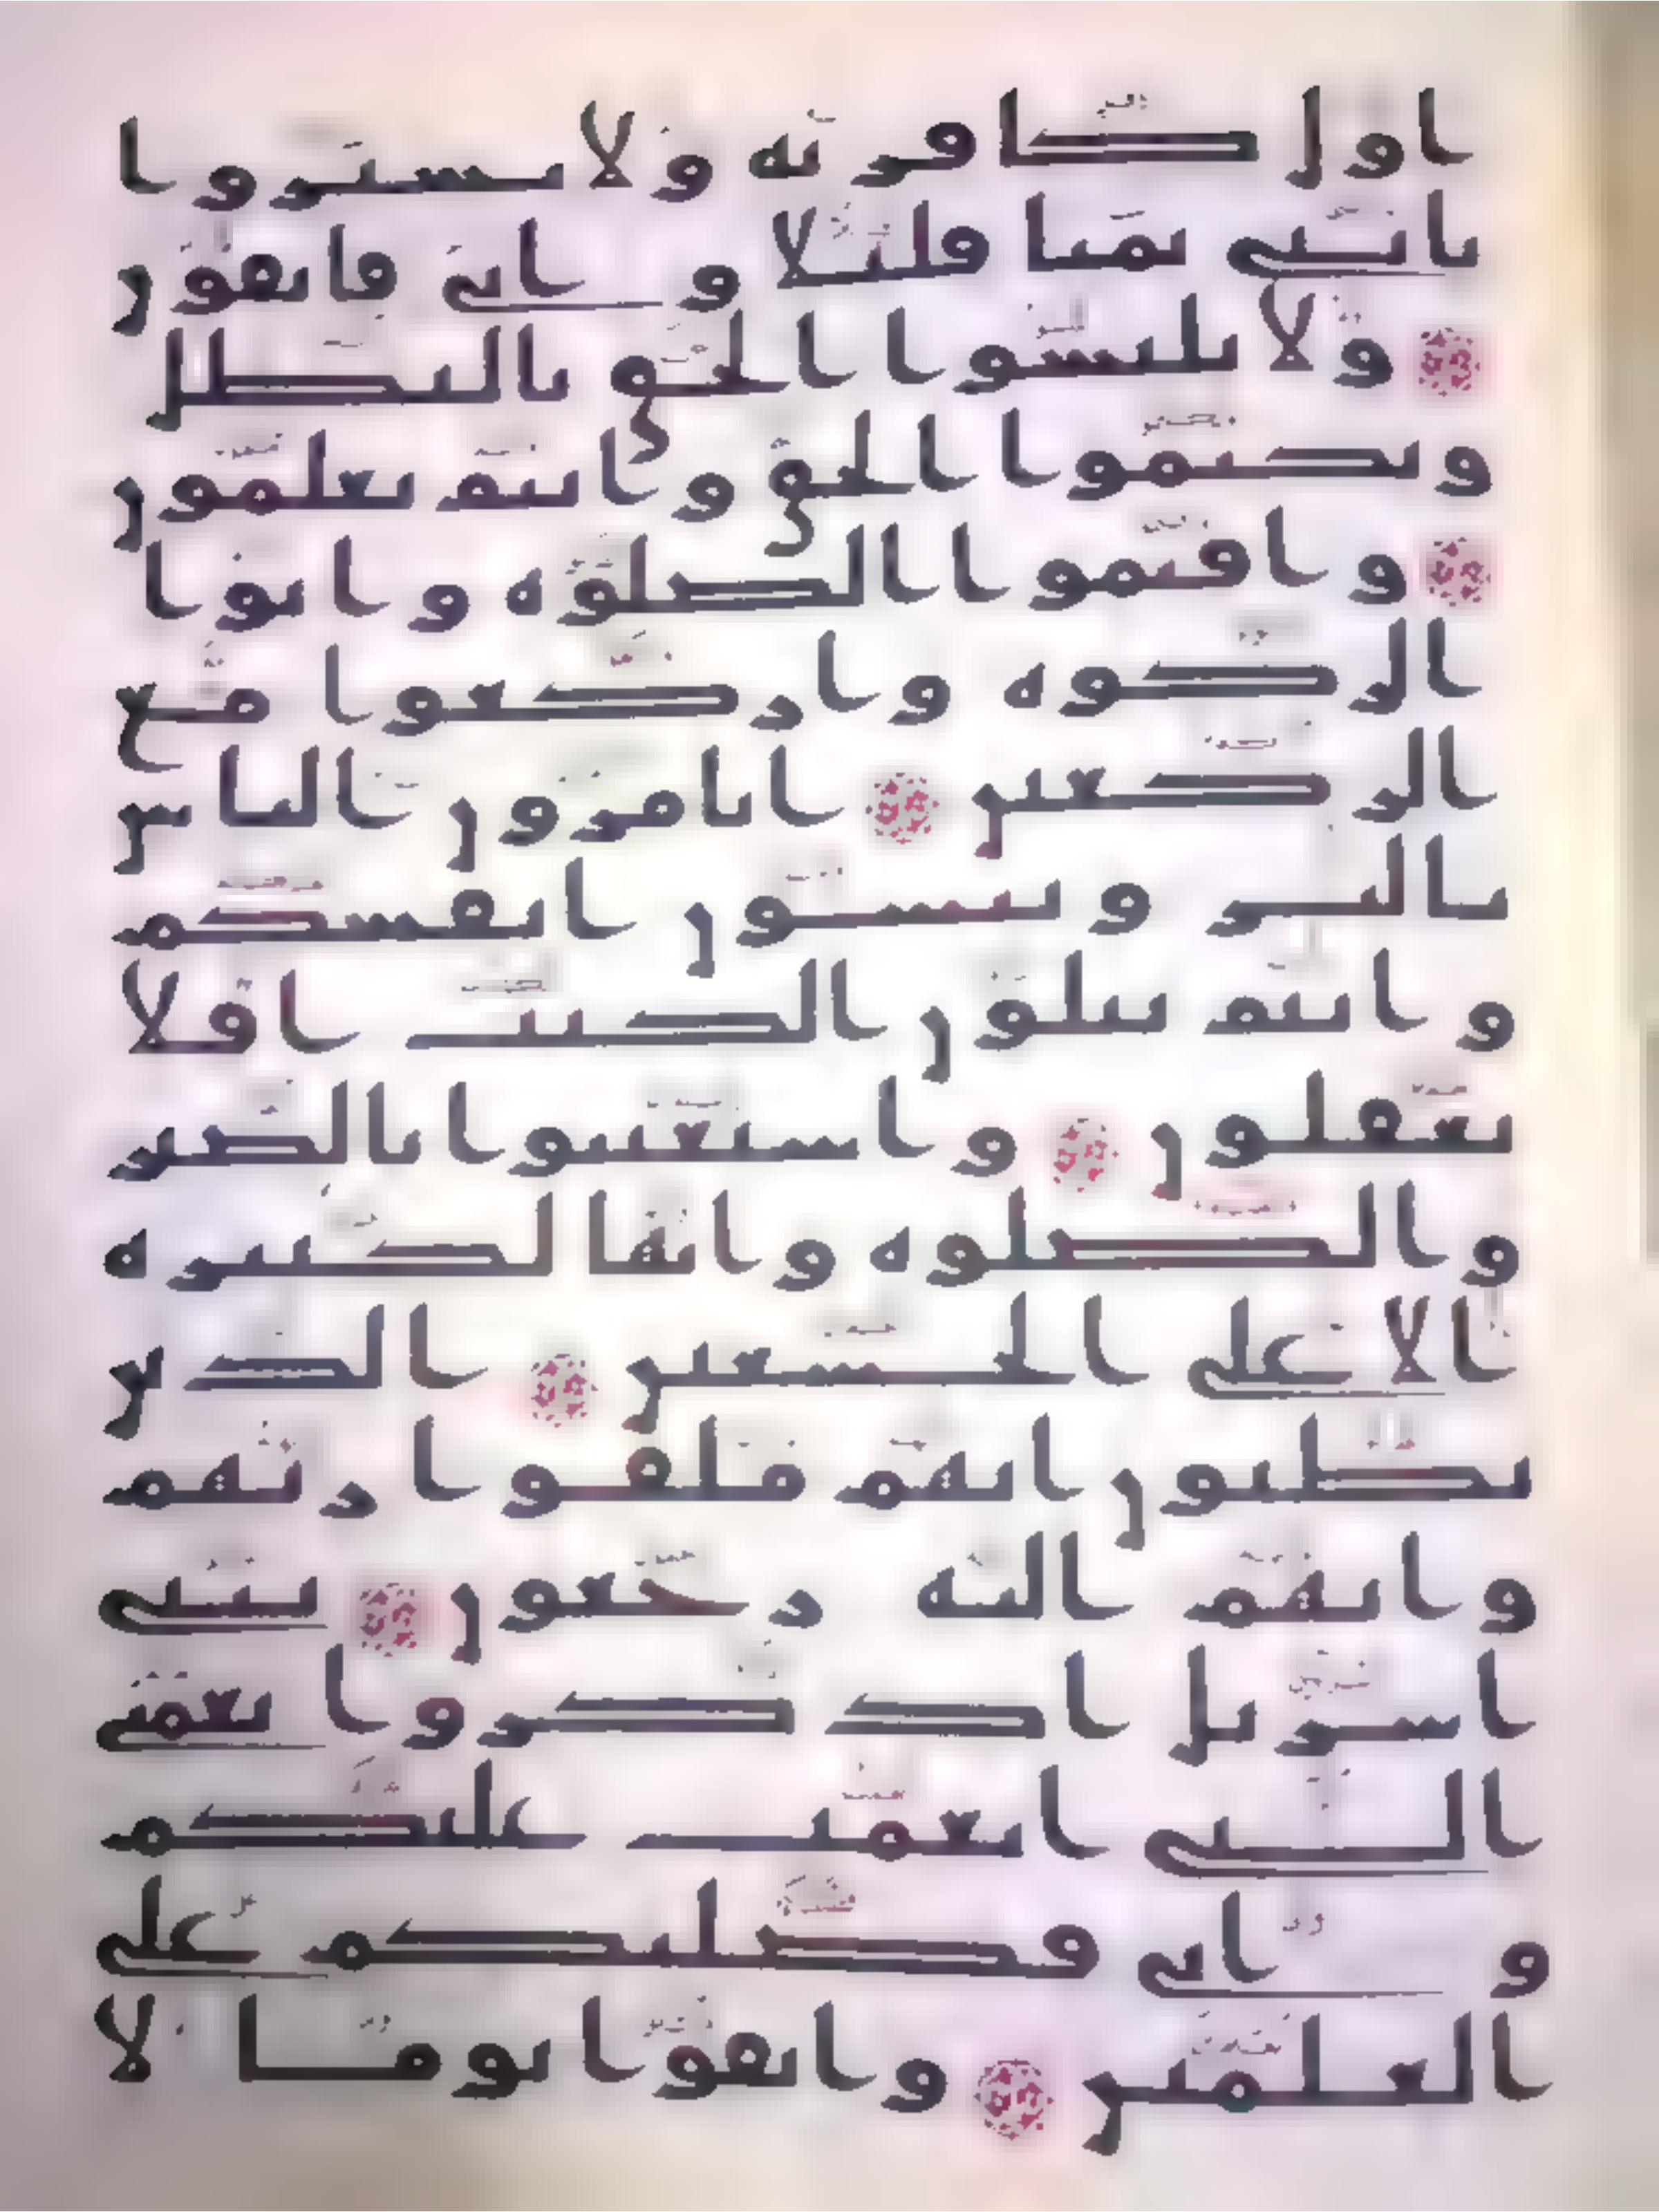 اول كافر به ولا تشتروا
بايتي ثمنا قليلا و ايى فاتقون
ولا تلبسوا الحق بالبطل
وتكتموا الحق وانتم تعلمون
واقيموا الصلوه واتوا
الزكوه واركعوا مع
الركعين اتامرون الناس
بالبر وتنسون انفسكم
وانتم تتلون الكتب افلا
تعقلون واستعينوا بالصبر
والصلوه وانها لكبيره
الا على الخشعين الذين
يظنون انهم ملقوا ربهم
وانهم اليه رجعون يبنى
اسريل اذكروا نعمتى
التى انعمت عليكم
و انى فضلتكم على
العلمين واتقوا يوما لا